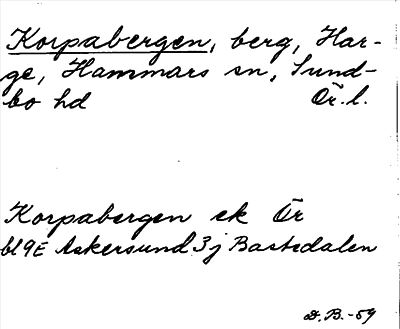 Korpabergen, berg, Har-
ge, Hammars sn, Sund-
bo hd Ör. l.
Korpabergen ek Ör
bl 9E Askersund 3j Bastedalen
D.B.-59